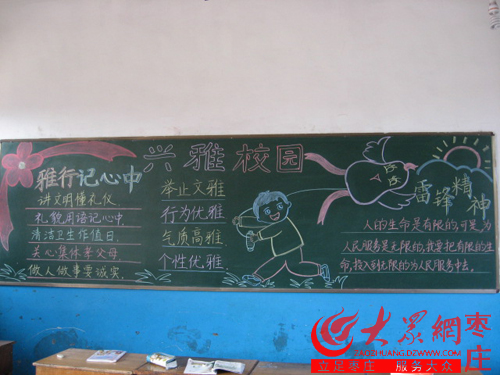 兴雅校园
雅行记心中
讲文明懂礼仪
礼貌用语记心中
清洁卫生作值日
关心集体孝父母
做人做事要诚实
举止文雅
行为优雅
气质高雅
个性优雅
雷锋精神
人的生命是有限的,可是为
人民服务是无限的,我要把有限的生
命,投入到无限的为人民服务中去。
大眾網枣庄
ZAOZHUANG.DZWWW.COM
立足枣庄 服务大众